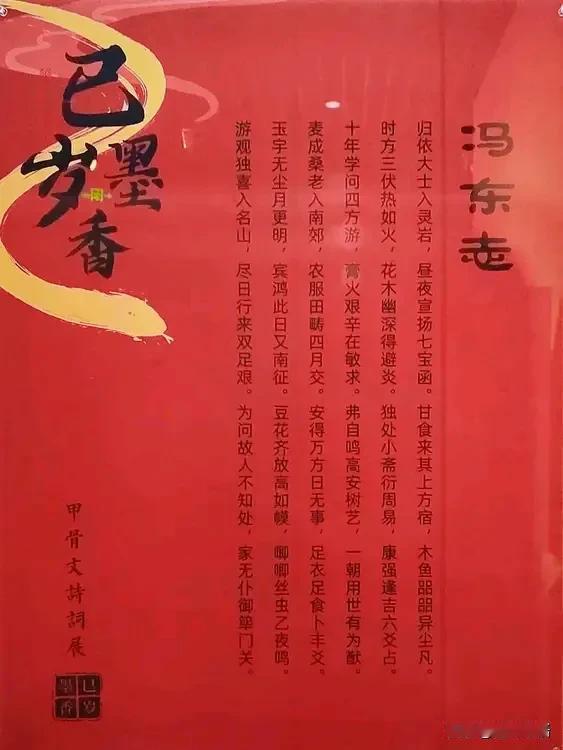 冯东志
归依大士入灵岩，昼夜宣扬七宝函。甘食来其上方宿，木鱼㗊㗊异尘凡。
时方三伏热如火，花木幽深得避炎。独处小斋衍周易，康强逢吉六爻占。
十年学问四方游，膏火艰辛在敏求。弗自鸣高安树艺，一朝用世有为猷。
麦成桑老入南郊，农服田畴四月交。安得万方日无事，足衣足食卜丰爻。
玉宇无尘月更明，宾鸿此日又南征。豆花齐放高如幙，唧唧丝虫乙夜鸣。
游观独喜入名山，尽日行来双足艰。为问故人不知处，家无仆御筚门关。
巳岁墨香
甲骨文詩詞展
巳岁墨香